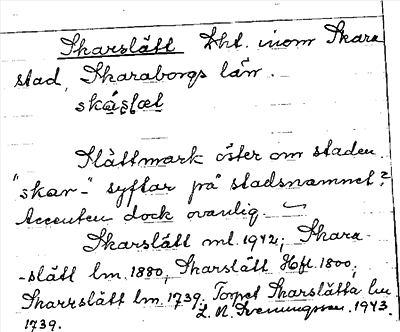 Skarslätt Lht. inom Skara
stad, Skaraborgs län.
Slättmark öster om staden.
"skar-" syftar på stadsnamnet?
Accenten dock ovanlig.
Skarslätt ml. 1942; Skara-
-slätt lm. 1880, Skarslätt Hfl. 1800;
Skarrslätt lm. 1739. Torpet Skarslätta lm
1739. 1943.